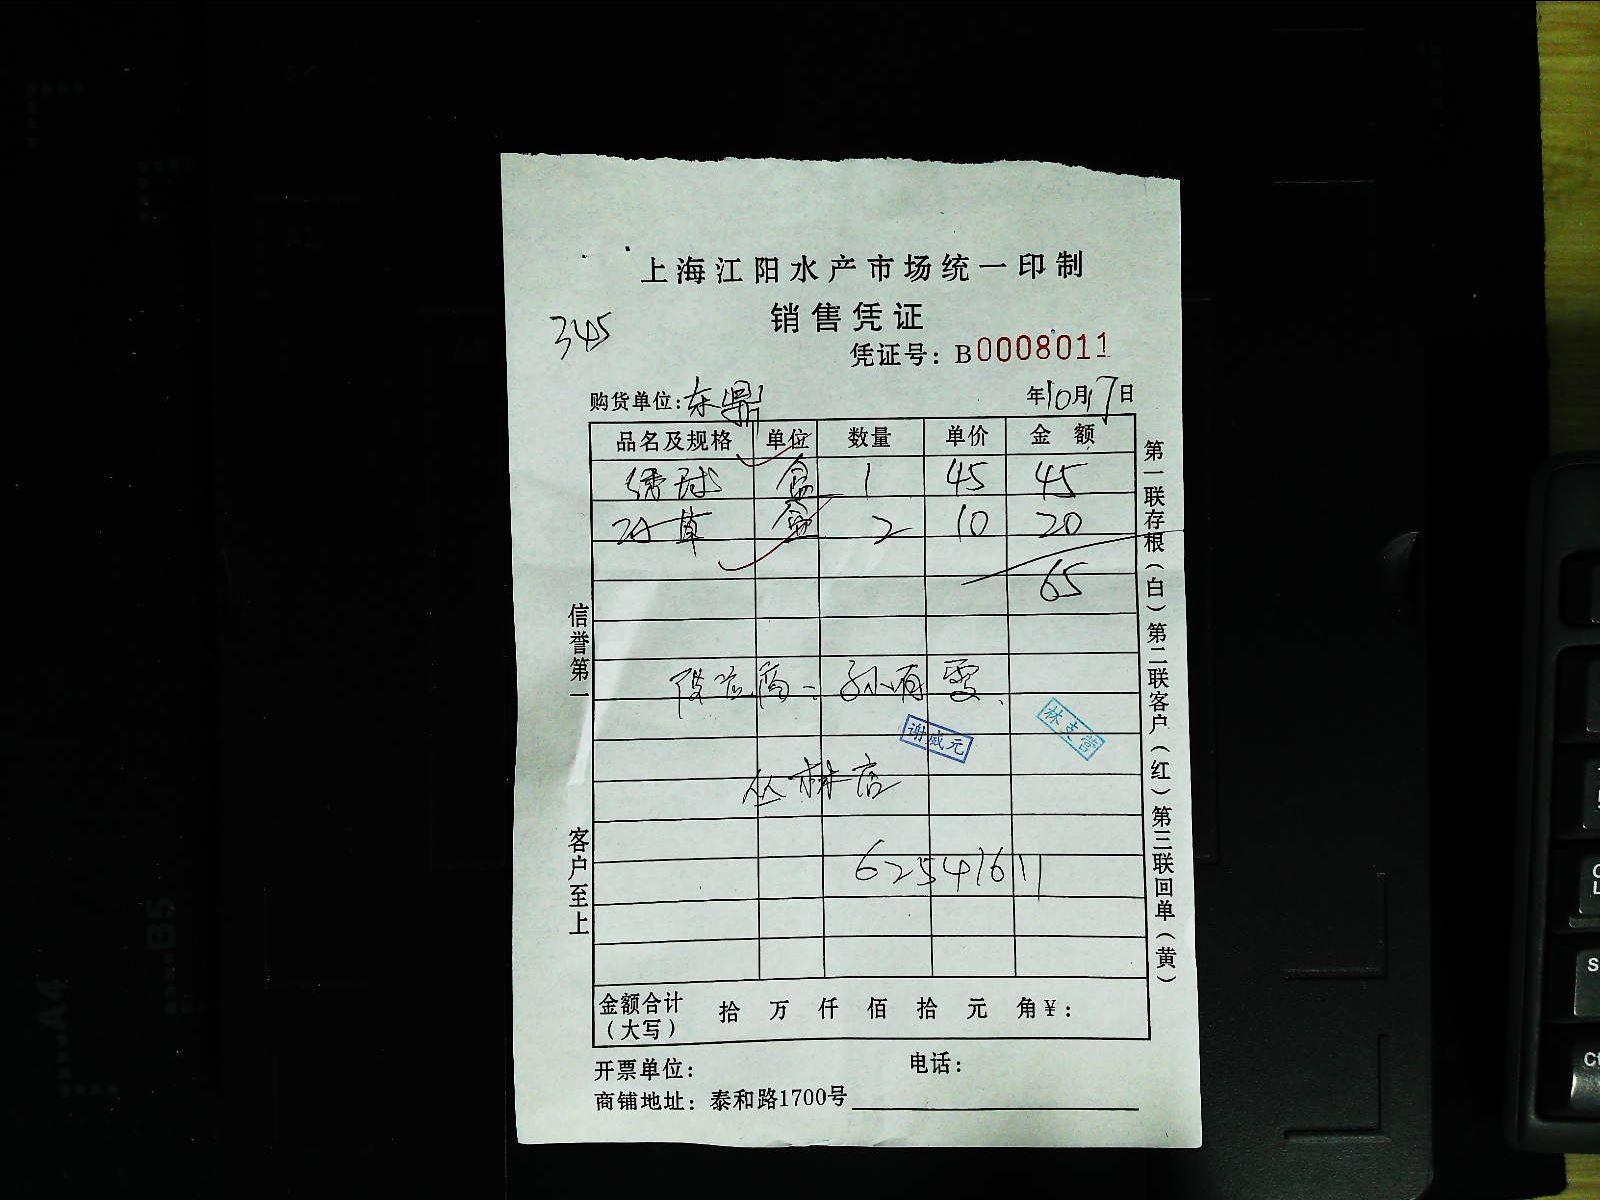 上海江阳水产市场统一印制
销售凭证
345
凭证号：B0008011
购货单位：东鼎
年10月17日
品名及规格 单位 数量 单价 金额
绣球 盒 1 45 45
草 盒 2 10 20
65
孙有雯
谢成元
林支营
丛林店
62541611
金额合计（大写） 拾 万 仟 佰 拾 元 角 ¥：
开票单位： 电话：
商铺地址：泰和路1700号
信誉第一 客户至上
第一联存根（白）第二联客户（红）第三联回单（黄）
A4
B5